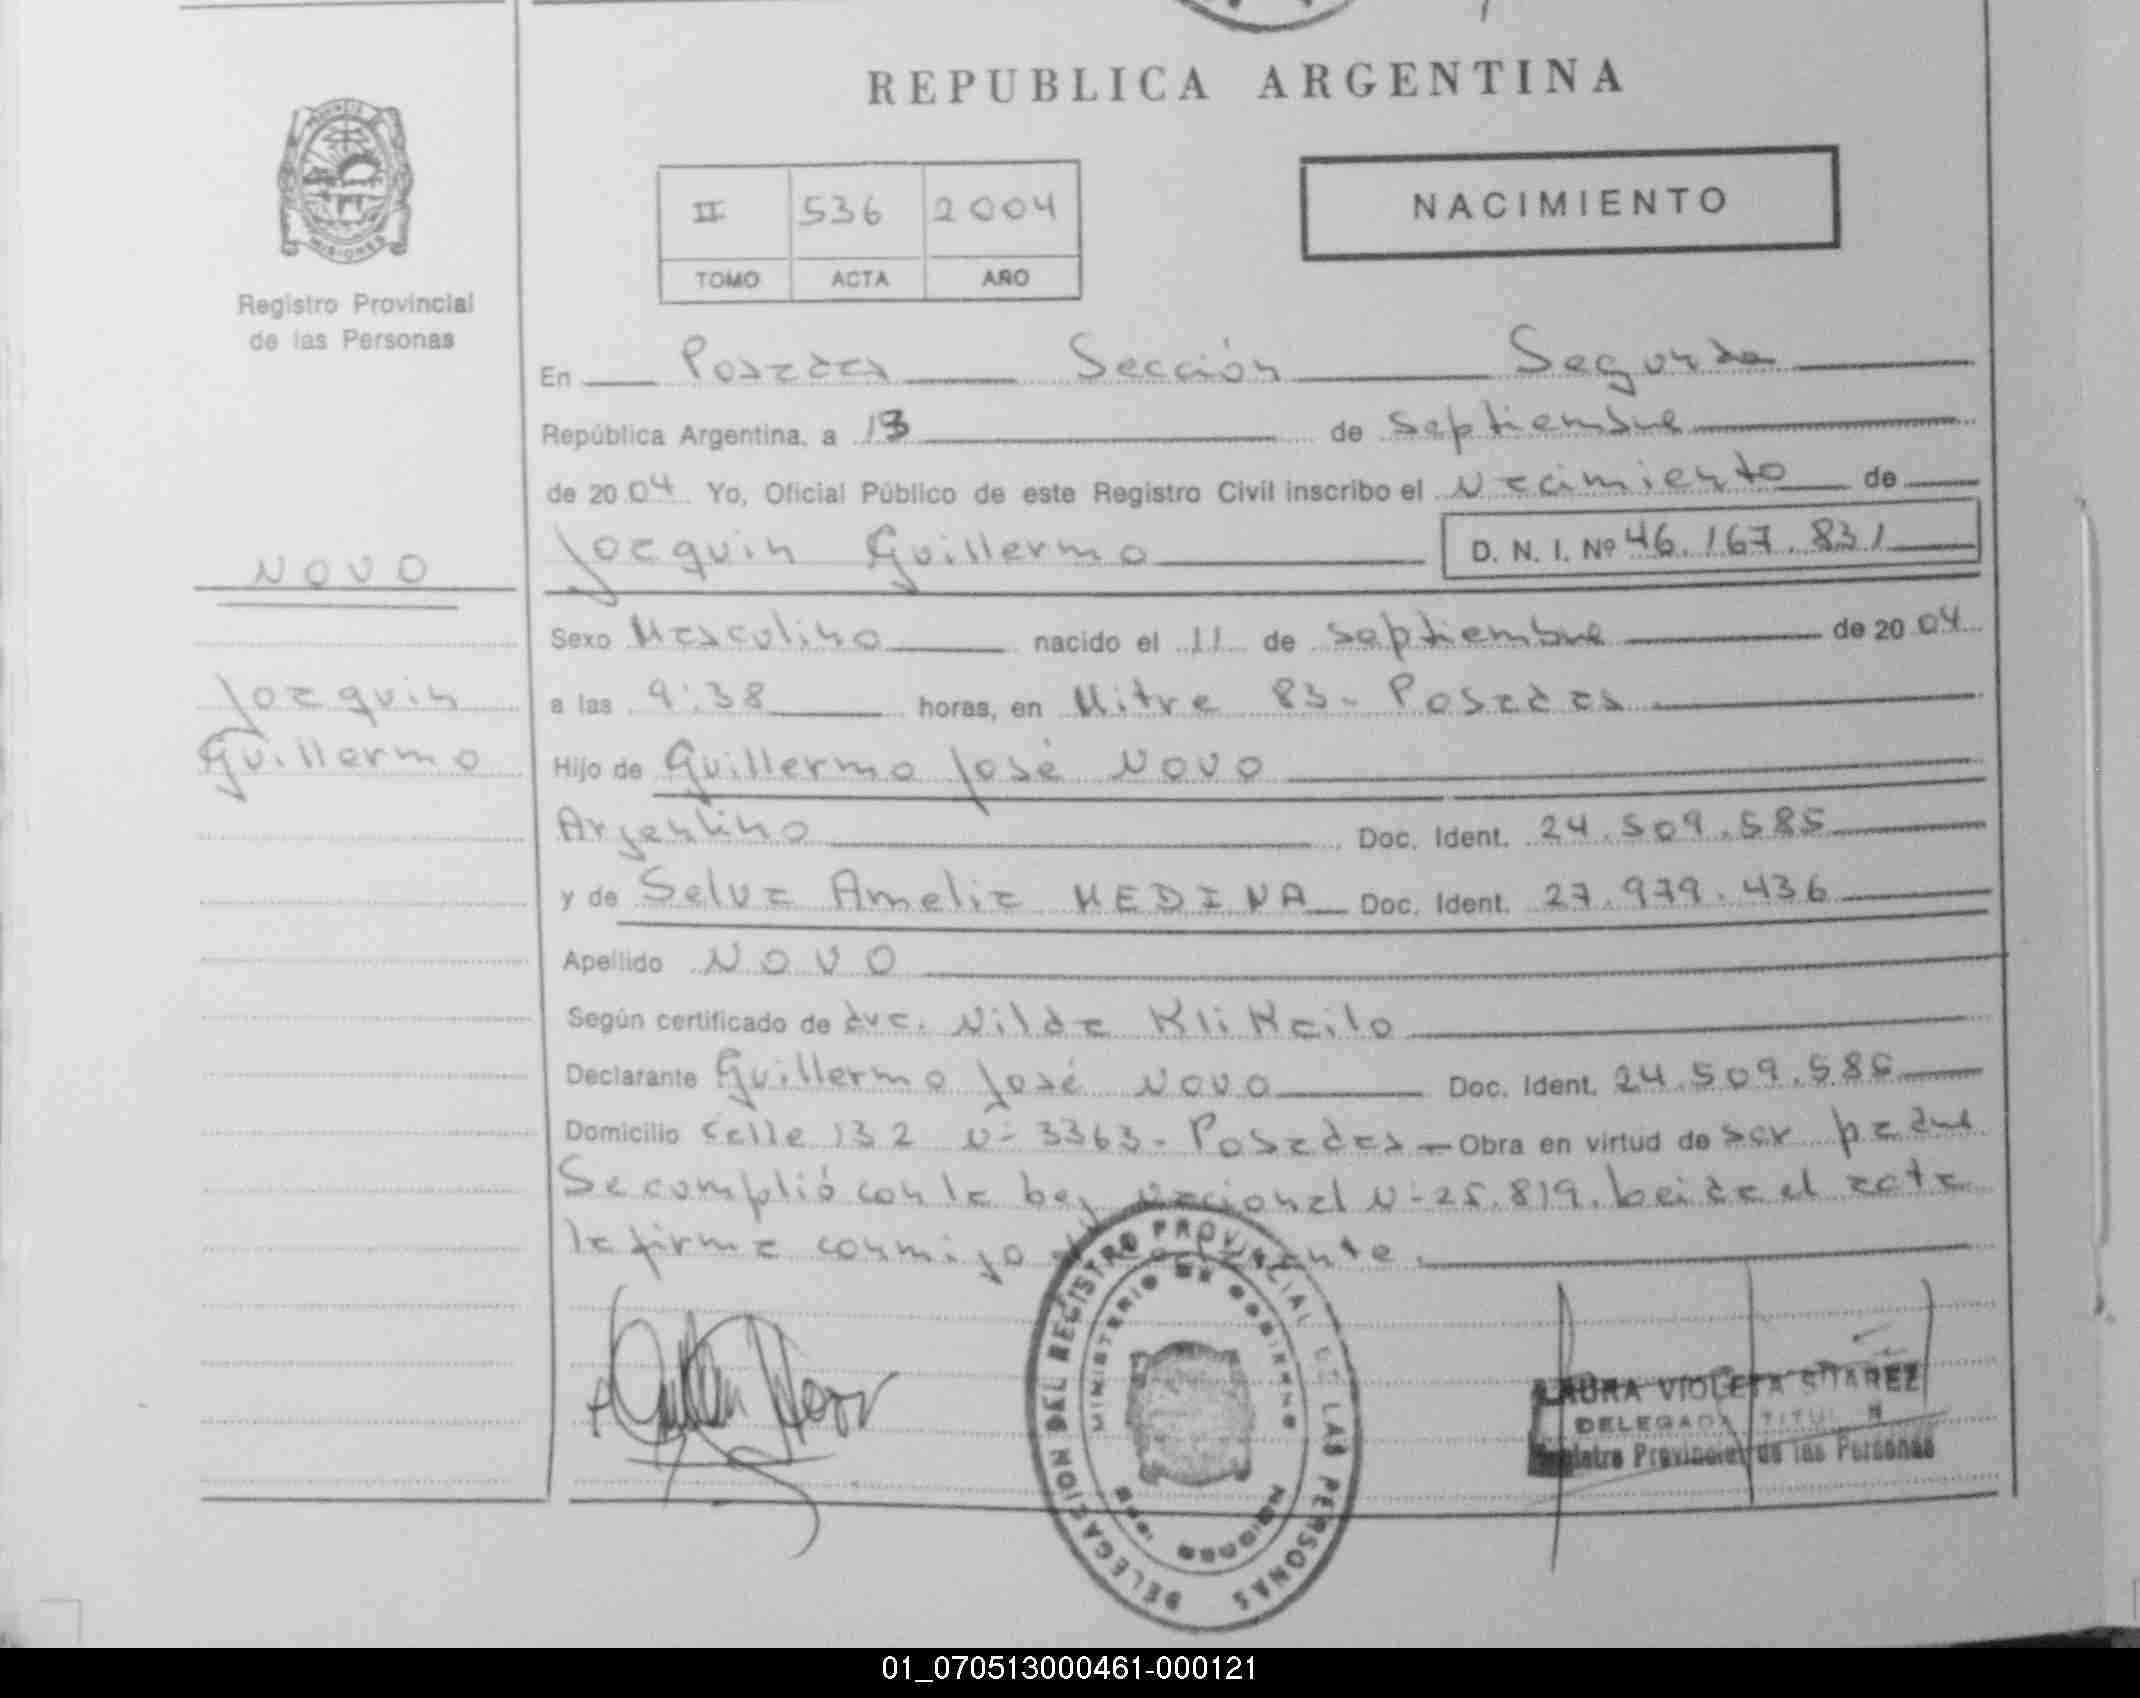 REPUBLICA ARGENTINA
PROVINCIA
MISIONES
Registro Provincial
de las Personas
II 536 2004
TOMO ACTA AÑO
NACIMIENTO
En Posadas Sección Segunda
República Argentina, a 13 de Septiembre
de 2004 Yo, Oficial Público de este Registro Civil inscribo el Nacimiento de
Joaquin Guillermo D. N. I. Nº 46.167.831
NOVO
Sexo Masculino nacido el 11 de Septiembre de 2004
Joaquin
a las 9:38 horas, en Mitre 83 - Posadas
Guillermo
Hijo de Guillermo José NOVO
Argentino Doc. Ident. 24.509.585
y de Selva Amelia MEDINA Doc. Ident. 27.979.436
Apellido NOVO
Según certificado de Nilda
Declarante Guillermo José NOVO Doc. Ident. 24.509.585
Domicilio Calle 132 Nº 3363 - Posadas - Obra en virtud de ser padre
Se cumplió con la Ley Nacional Nº 25.819. Leida el acta
la firma conmigo
DELEGACION DEL REGISTRO PROVINCIAL DE LAS PERSONAS
MINISTERIO DE GOBIERNO
LAURA VIOLETA SUAREZ
DELEGADA TITULAR
Registro Provincial de las Personas
01_070513000461-000121